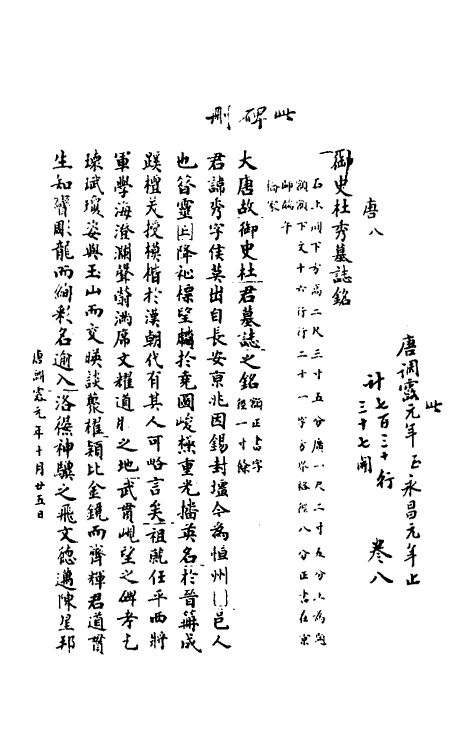 此碑刪
此
唐調露元年至永昌元年止
計七百三十行
三十七開
卷八
唐八
御史杜秀墓誌銘
石上圓下方高二尺三寸五分廣一尺二寸五分上為圓
額額下文十六行行二十一字方界格徑八分正書在京
師端午
橋家
大唐故御史杜君墓誌之銘 額正書字徑一寸餘
君諱秀字侯莫出自長安京兆因錫封壃令為恒州邑人
也昔靈降祉標望麟於堯圖峻極重光播英名於晉冊成
蹊檀美授模楷於漢朝代有其人可略言矣祖就任平西將
軍學海澄瀾聲蔚滿席文耀道之地武貫峴望之碑孝
瑓斌瓊姿與玉山而交暎談藂櫂穎比金鏡而齊輝君道貫
生知彫龍而絢彩名逾入洛得神驥之飛文德邁陳星邦
唐調露元年十月廿五日